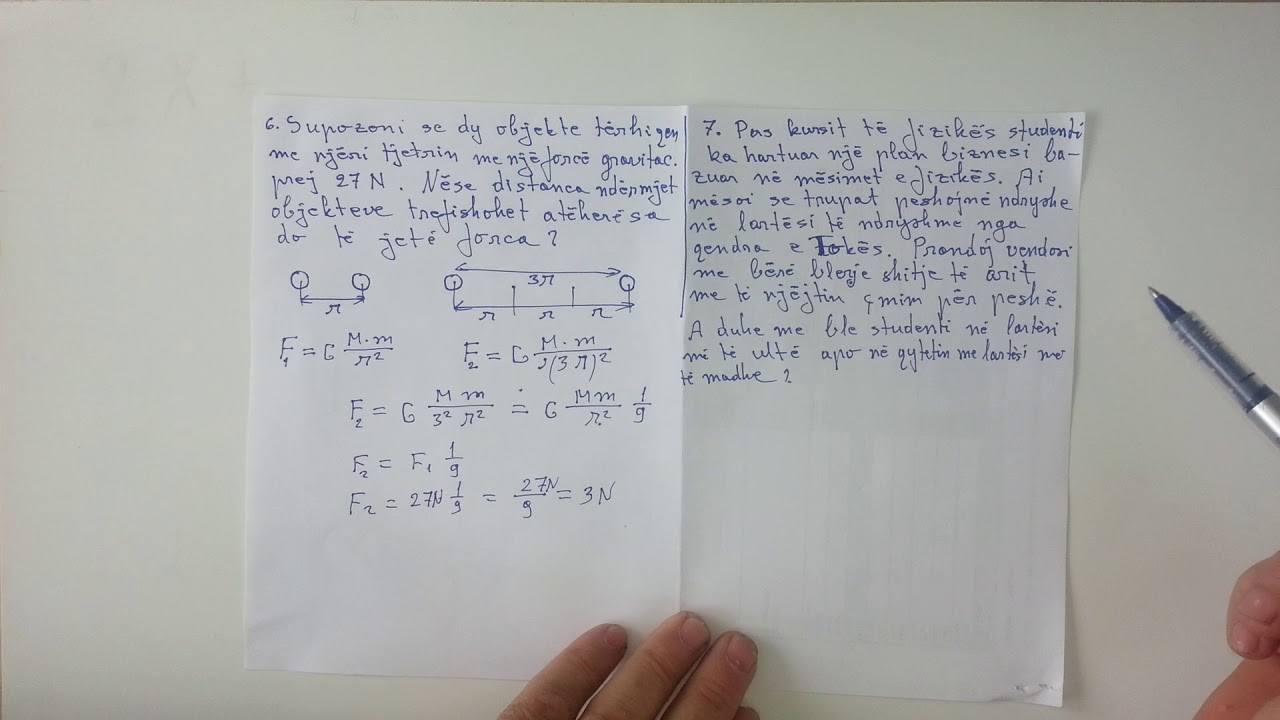 6. Supozoni se dy objekte tërhiqen
me njëri tjetrin me një forcë gravitac.
prej 27 N. Nëse distanca ndërmjet
objekteve trefishohet atëherë sa
do të jetë forca?
3r
r
r r r
F₁ = G M·m/r²
F₂ = G M·m/(3r)²
F₂ = G Mm/3²r² = G Mm/r² 1/9
F₂ = F₁ 1/9
F₂ = 27N 1/9 = 27N/9 = 3N
7. Pas kursit të fizikës studenti
ka hartuar një plan biznesi ba-
zuar në mësimet e fizikës. Ai
mësoi se trupat peshojnë ndryshe
në lartësi të ndryshme nga
qendra e Tokës. Prandaj vendosi
me bërë blerje shitje të arit
me të njëjtin çmim për peshë.
A duhe me ble studenti në lartësi
më të ultë apo në qytetin me lartësi më
të madhe?